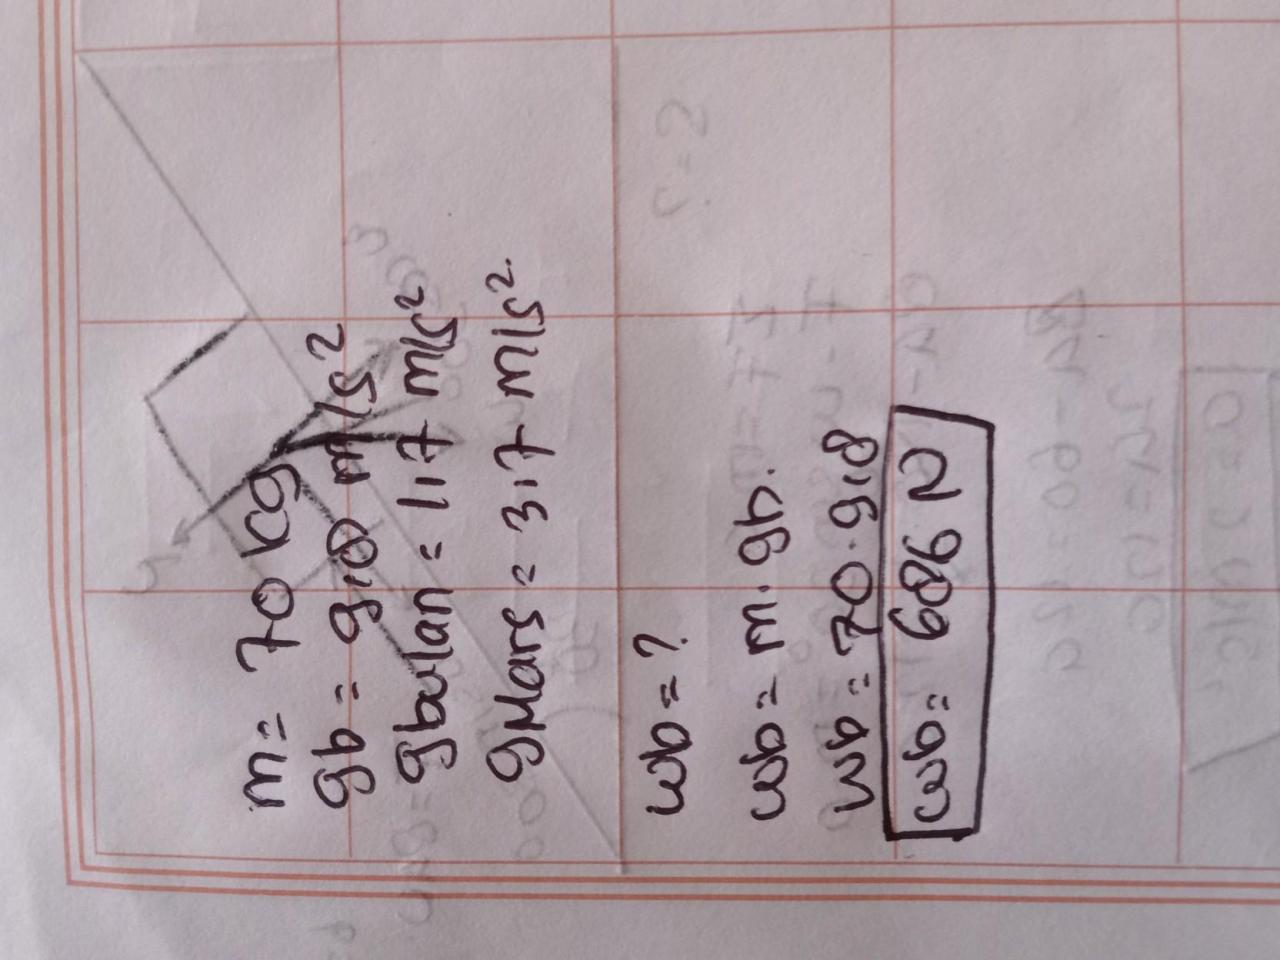 m = 70 kg
gb = 9,8 m/s²
gbulan = 1,7 m/s²
gMars = 3,7 m/s².
wb = ?
wb = m. gb.
wb = 70. 9,8
wb = 686 N